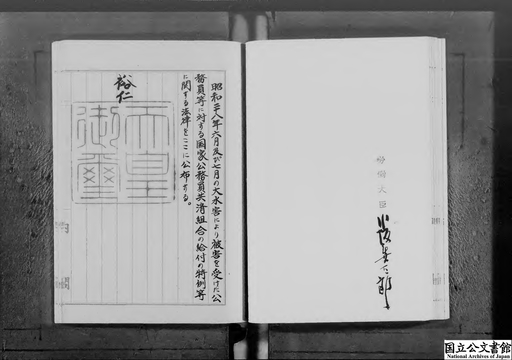 昭和二十八年六月及び七月の大水害により被害を受けた公
務員等に対する国家公務員共済組合の給付の特例等
に関する法律をここに公布する。
裕仁
天皇
御璽
大臣
国立公文書館
National Archives of Japan